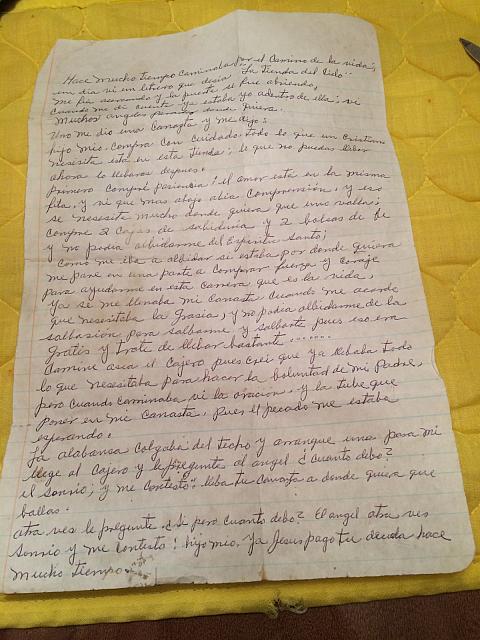 Hace mucho tiempo caminaba por el camino de la vida,
un dia vi un letrero que desia "La Tienda del Cielo".
Me fui acercando y la puerta se fue abriendo,
cuando me di cuenta ya estaba yo adentro de ella; vi
muchos angeles parados donde quiera.
Uno me dio una canasta y me dijo:
hijo mio, compra con cuidado, todo lo que un cristiano
necesita esta en esta tienda; lo que no puedas llebar
ahora lo llebaras despues.
primero compré pasiencia: el amor esta en la misma
fila, y vi que mas abajo abia comprension, y eso
se nesesita mucho donde quiera que uno valla;
compre 2 cajas de sabiduria y 2 bolsas de fe
y no podia albidarme del Espiritu Santo;
como me iba a albidar si estaba por donde quiera
me pare en una parte a comprar fuerza y coraje
para ayudarme en esta carrera que es la vida,
ya se me llenaba mi canasta cuando me acorde
que nesesitaba la Grasia, y no podia albidarme de la
salbasión para salbarme y salbarte pues eso era
gratis y trate de llebar bastante......
Camine asia el cajero pues crei que ya llebaba todo
lo que nesesitaba para hacer la boluntad de mi Padre,
pero cuando caminaba vi la oracion, y la tube que
poner en mi canasta, pues el pecado me estaba
esperando.
La alabansa colgaba del techo y arranque una para mi
llege al cajero y le pregunte al angel ¿cuanto debo?
el sonrio; y me contesto: lleba tu canasta a donde quiera que
ballas.
atra ves le pregunte ¿Si pero cuanto debo? El angel atra ves
sonrio y me contesto: hijo mio, ya Jesus pago tu deuda hace
mucho tiempo.